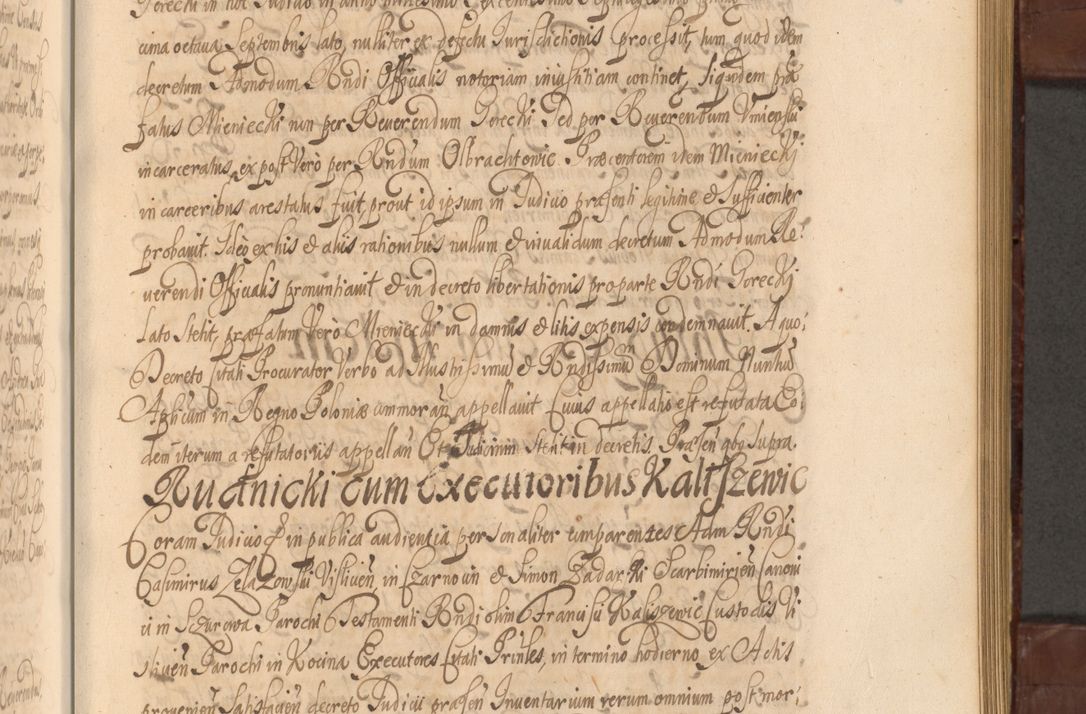 cima octava Septembris lato, nulliter ex defectu Jurisdictionis processit, tum quod idem
decretum Admodum Rndi Officialis notoriam injustitiam continet, siquidem præ
fatus Mieniecki non per Reverendum Gorecki Sed per Reverendum Unienski
incarceratus, ex post verò per Rndum Olbrachtowic Præcentorem idem Mieniecki
in carceribus arestatus fuit, prout id ipsum in Judicio præsenti legitime et sufficienter
probavit. Ideo ex his et aliis rationibus nullum et invalidum decretum Admodum Re:
verendi Officialis pronuntiavit et in decreto libertationis pro parte Rndi Gorecki
lato stetit, præfatum verò Mieniecki in damnis et litis expensis condemnavit. A quo:
Decreto Citati Procurator verbo ad Illustrissimū et Rndissimū Dominum Nuntiū
Aplicum in Regno Poloniæ commorań appellavit Cuius appellatio est refutata Eo
dem iterum a refutatoriis appellań Et Judicium stetit in decretis. Præsen: qbs supra.
Rudnicki cum Executoribus Kaliszewic
Coram Judicio et in publica audientia personaliter comparentes Adm Rndi
Casimirus Zelazowski Vislicień in Czarnocin et Simon Zadarski Scarbimirień Canoni
ci in Schurowa Parochi Testamenti Rndi olim Francisci Kaliszewic Custodis Vi
slicień Parochi in Kocina Executores Citati Prinles, in termino hodierno ex Actis
provenień satisfacień decreto Judicii præseń Inventarium rerum omnium post mor: